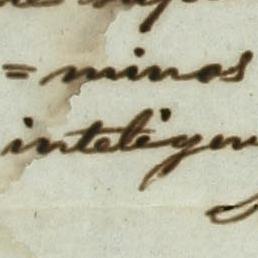 =minos
inteligen